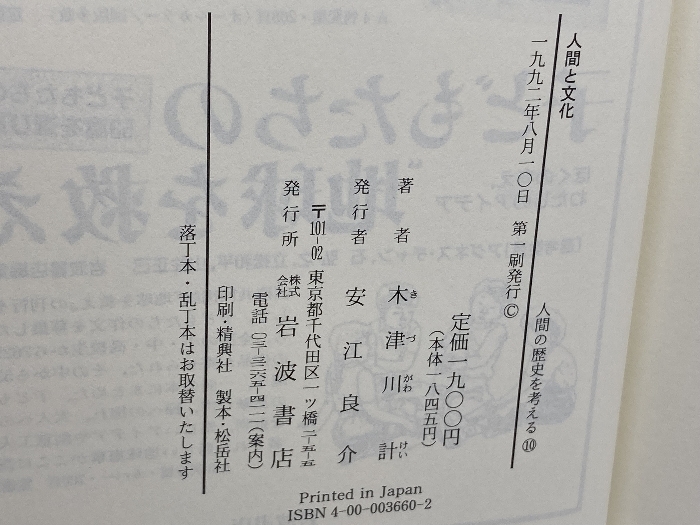 人間と文化
人間の歴史を考える⑩
一九九二年八月一〇日　第一刷発行©
定価一九〇〇円
（本体一八四五円）
著者　木津川計
きづがわけい
発行者　安江良介
〒101-02　東京都千代田区一ツ橋二-五-五
発行所　株式会社　岩波書店
電話〇三-三二六五-四一一一（案内）
印刷・精興社　製本・松岳社
落丁本・乱丁本はお取替いたします
Printed in Japan
ISBN 4-00-003660-2